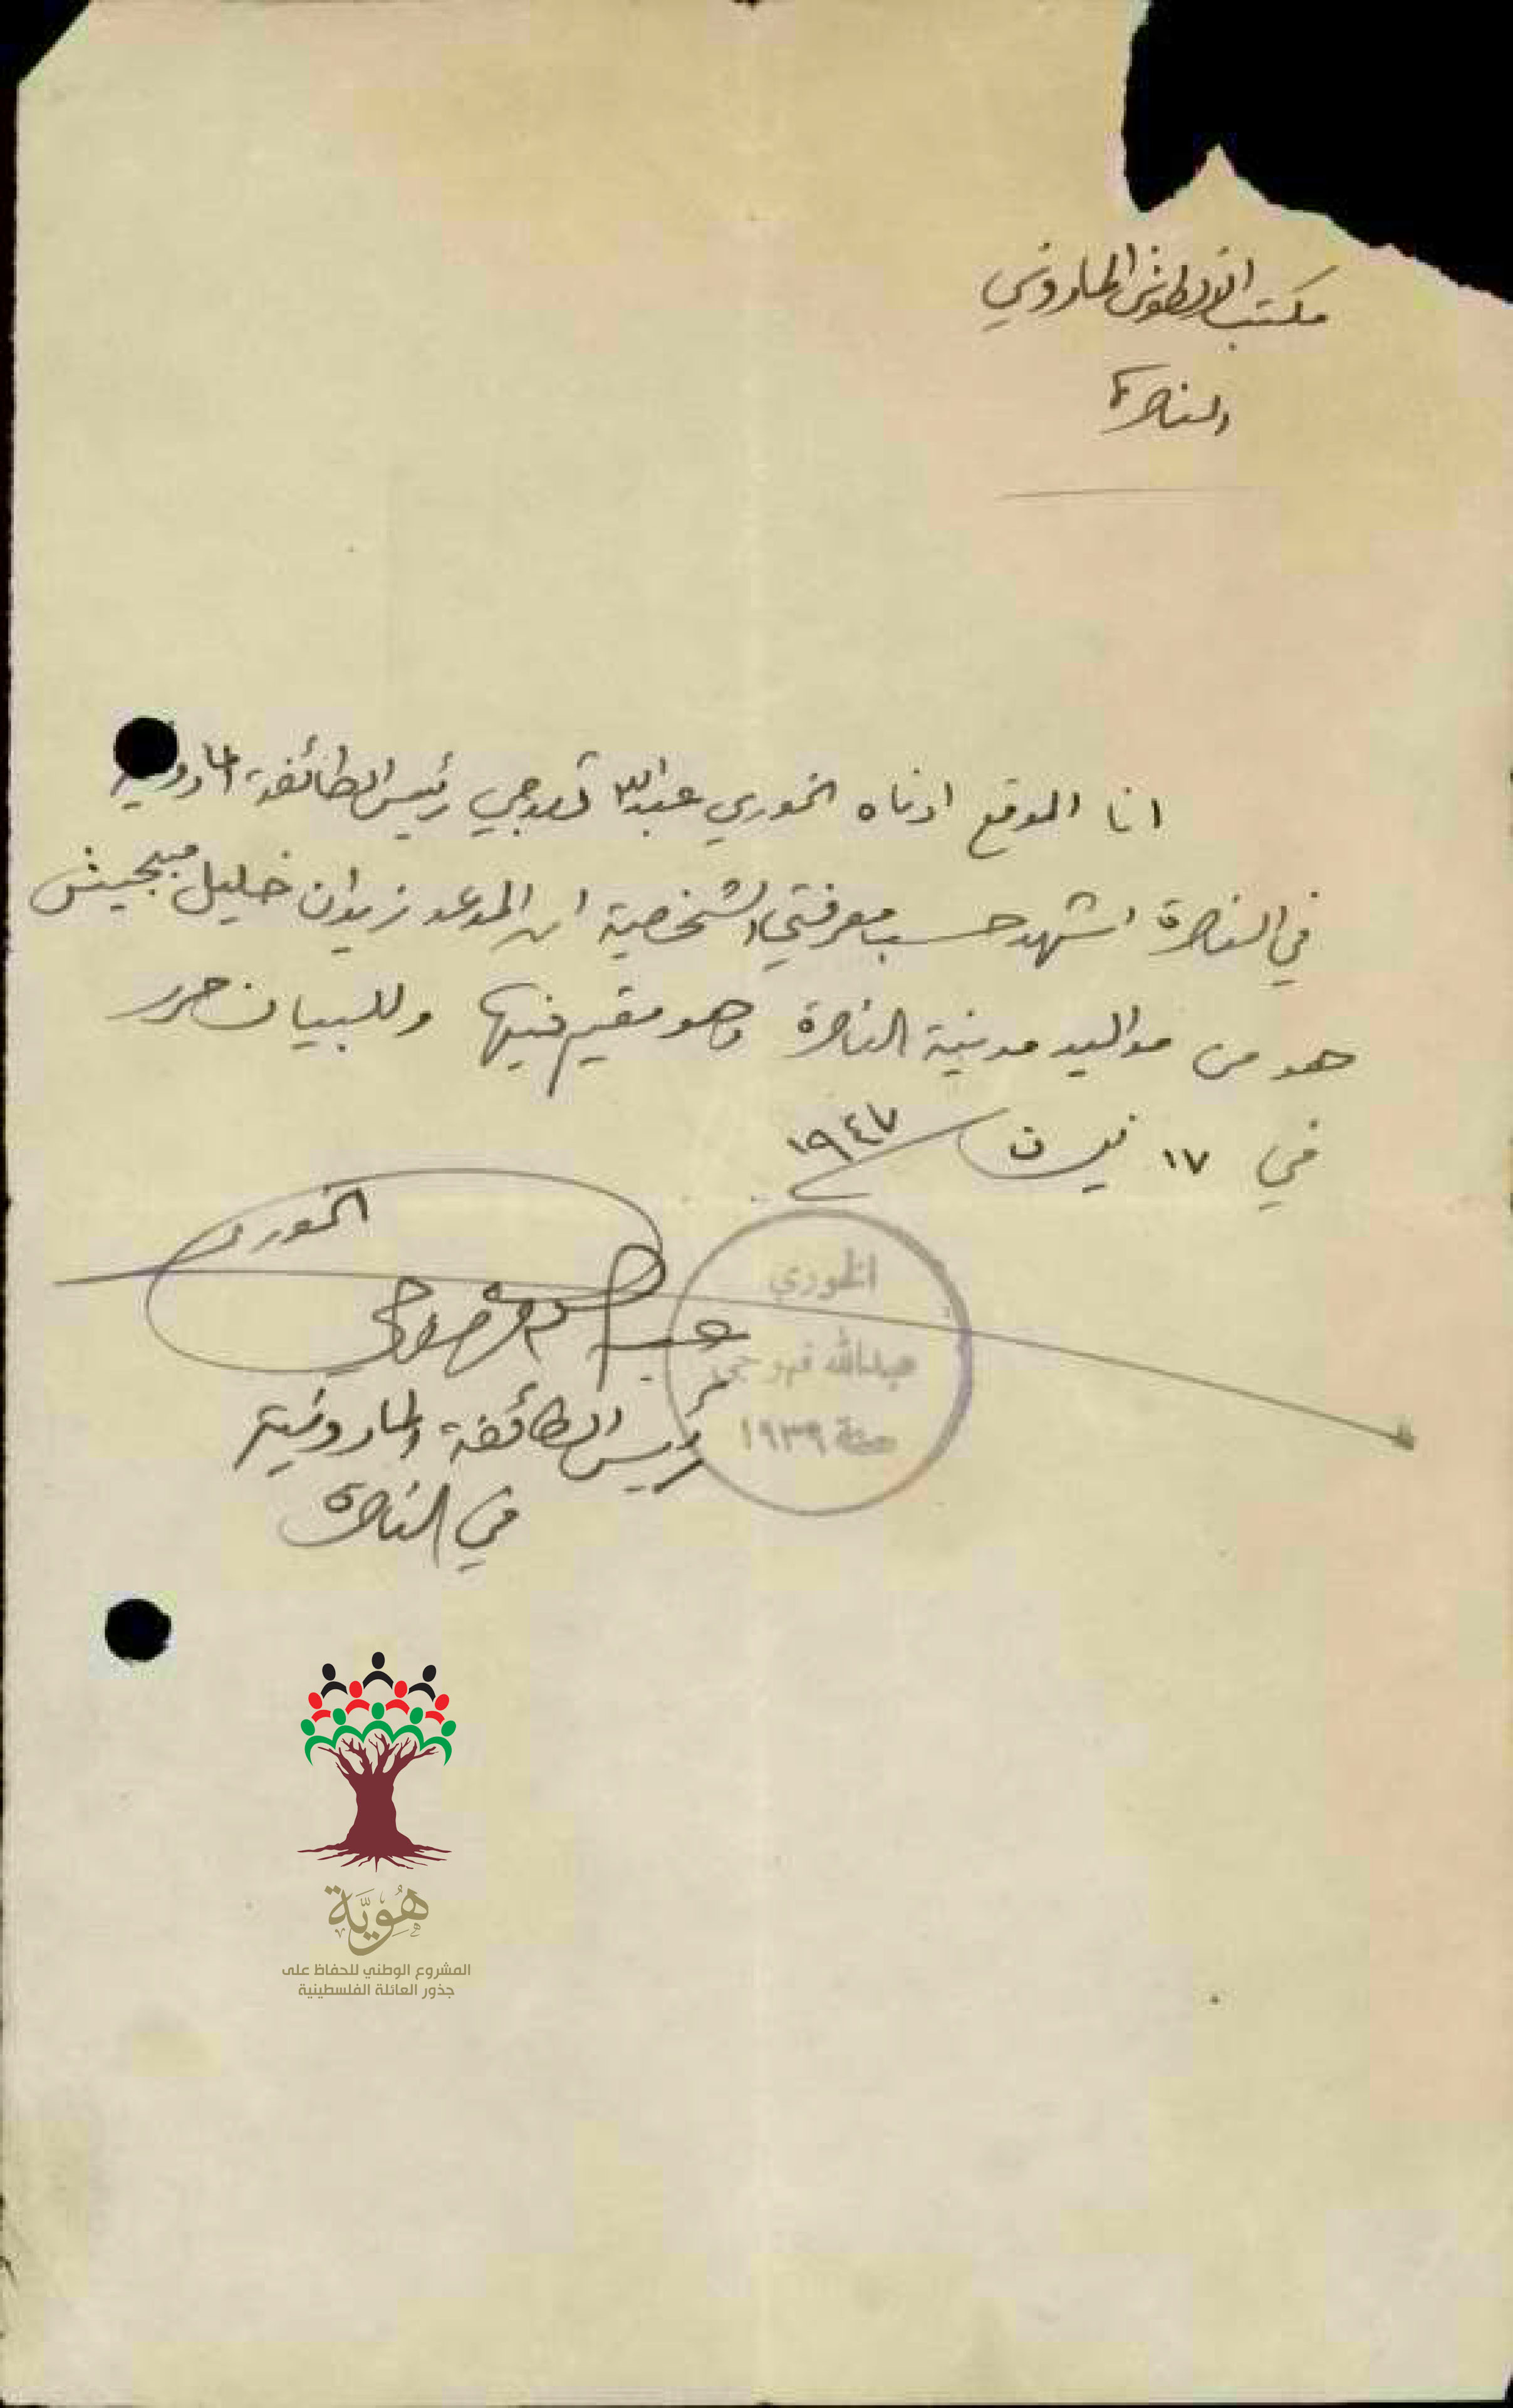 مكتب الماروني
الناصرة
انا الموقع ادناه الخوري عبدالله قهوجي رئيس الطائفة المارونية
في الناصرة اشهد حسب معرفتي الشخصية ان المدعو خليل
هو من مواليد مدينة الناصرة وهو مقيم فيها وللبيان حرر
في ١٧ نيسان ١٩٤٧
الخوري
عبدالله قهوجي
رئيس الطائفة المارونية
في الناصرة
الخوري
عبدالله قهوجي
سنة ١٩٣٩
هُوِيَّة
المشروع الوطني للحفاظ على
جذور العائلة الفلسطينية